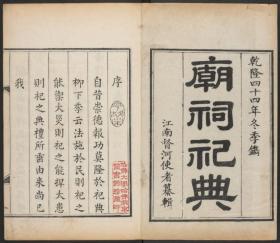 乾隆四十四年冬季鐫
廟祠祀典
江南督河使者纂輯
序
自昔崇德報功莫隆於祀典
柳下季云法施於民則祀之
能禦大災則祀之能捍大患
則祀之典禮所需由來尚已
我